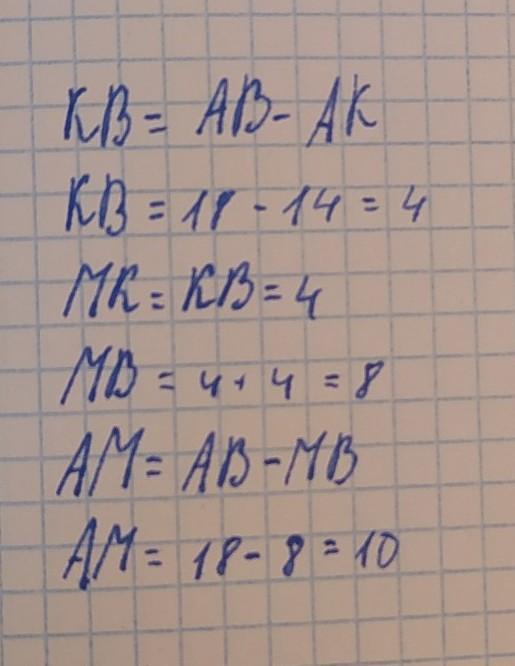 KB = AB - AK
KB = 18 - 14 = 4
MK = KB = 4
MB = 4 + 4 = 8
AM = AB - MB
AM = 18 - 8 = 10